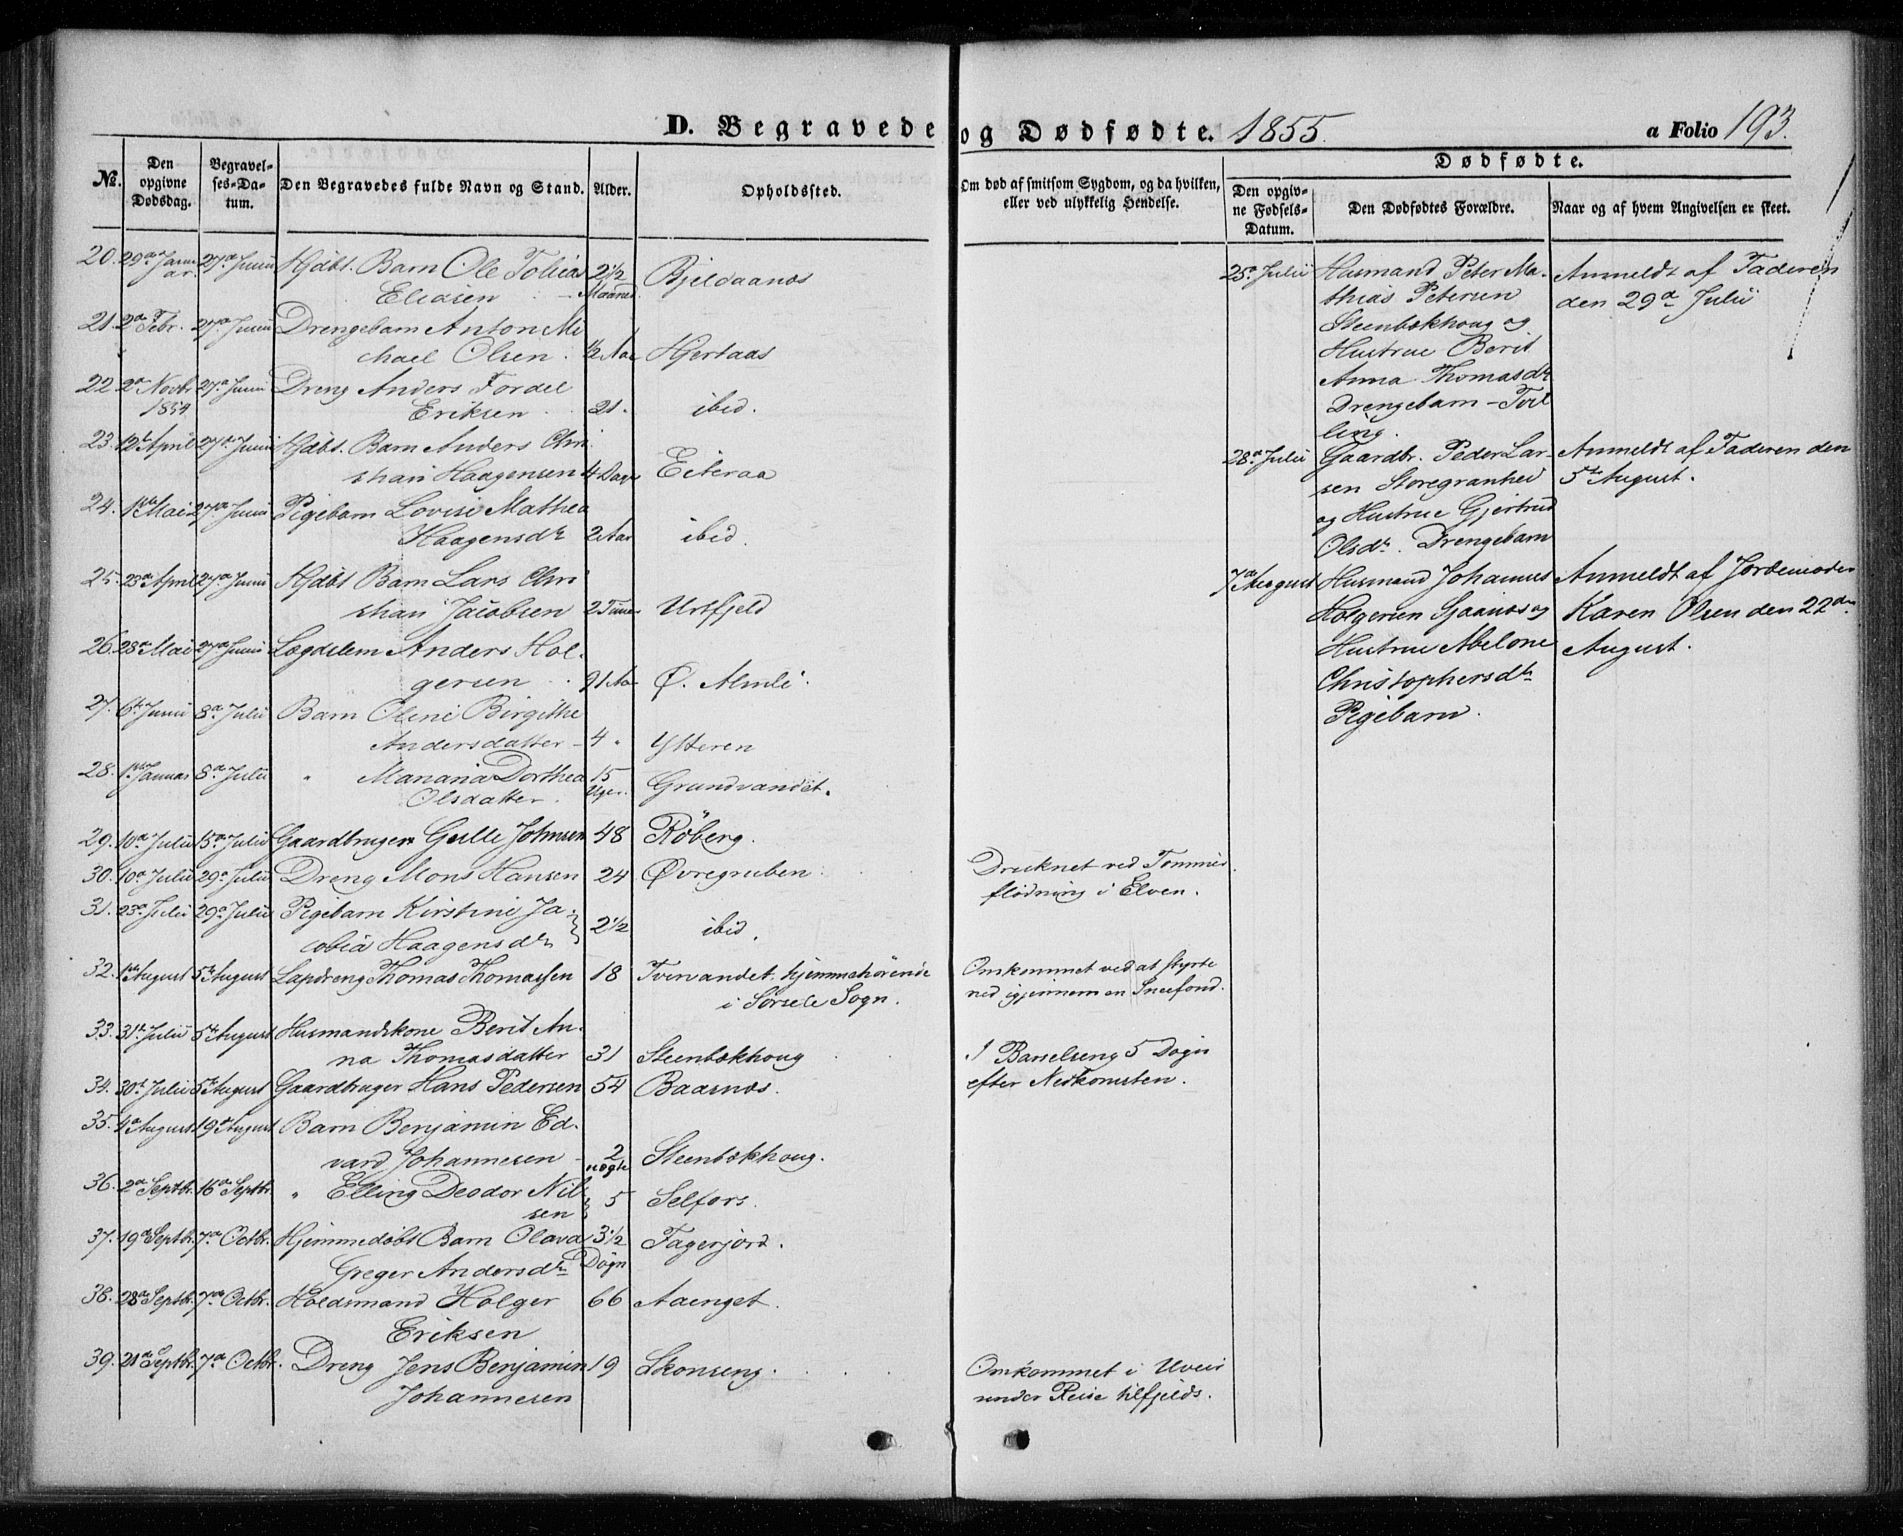 D. Begravede og Dødfødte. 1855. a Folio 193.
No. Den opgivne Dødsdag. Begravelses-Datum. Den Begravedes fulde Navn og Stand. Alder. Opholdssted. Om død af smitsom Sygdom, og da hvilken, eller ved ulykkelig Hendelse.
Dødfødte.
Den opgivne Fødsels-Datum. Den Dødfødtes Forældre. Naar og af hvem Angivelsen er skeet.
20. 29de Januar. 27de Junii Hjdbt. Barn Ole Tobias 2 1/2
Eliasen Maaned Bjeldaanæs
21. 2den Febr. 27de Junii Drengebarn Anton Mi
chael Olsen. 1/2 Aar Hjertaas
22. 2den Novbr 27de Junii Dreng Anders Fordel
1854 Eriksen 21. ibid.
23. 12te April 27de Junii Hjdbt. Barn Anders Chri
stian Haagensen 4 Dage Eiteraa
24. 1ste Mai 27de Junii Pigebarn Lovise Mathea
Haagensdtr 2 Aar ibid.
25. 23de April 27de Junii Hjdbt Barn Lars Chri
stian Jacobsen 2 Timer Urtfjeld
26. 28de Mai 27de Junii Lægdslem Anders Hol-
gersen 91 Aar Ø. Almli.
27. 6te Junii 8de Julii Barn Oline Birgithe
Andersdatter 4 " Ytteren
28. 1ste Januar 8de Julii " Mariana Dorthea 15
Olsdatter. Uger. Grundvandet.
29. 10de Julii 15de Julii Gaardbruger Gulle Johnsen 48 Röberg.
30. 10de Julii 29de Julii Dreng Mons Hansen 24 Øvregruben. Drucknet ved Tømmer
flödning i Elven.
31. 23de Julii 29de Julii Pigebarn Kirstine Ja-
cobia Haagensdtr 2 1/2 ibid.
32. 1ste August 5te August Lapdreng Thomas Thomassen 18 Tvervandet, hjemmehörende
i Sörsele Sogn. Omkommet ved at styrte
ned igjennem en Sneefond.
33. 31te Julii 5te August Husmandskone Berit An-
na Thomasdatter 31 Steenbækhoug I Barselseng 5 Dögn
efter Nedkomsten.
34. 30te Julii 5te August Gaardbruger Hans Pedersen 54 Baasnæs.
35. 4de August 19de August Barn Benjamin Ed-
vard Johannesen 2 Steenbækhoug.
36. 2den Septbr. 16de Septbr. " Elling Deodor Nil
sen 5 Selfors.
37. 19de Septbr. 7de Octbr. Hjemmedöbt Barn Olava 3 1/2
Greger Andersdtr Dögn Fagerjord.
38. 28de Septbr. 7de Octbr. Holdsmand Holger 66 Aaenget.
Eriksen
39. 21de Septbr. 7de Octbr. Dreng Jens Benjamin 19 Skonseng.
Johannesen Omkommet i Uveir
under Reise tilfjelds.
25de Julii Husmand Peter Ma-
thias Petersen
Steenbækhoug og
Hustrue Berit
Anna Thomasdtr
Drengebarn – Tvil
ling.
Anmeldt af Faderen
den 29de Julii
28de Julii Gaardbr. Peder Lar-
sen Storegranhei
og Hustrue Gjertrud
Olsdtr. Drengebarn
Anmeldt af Faderen den
5te August.
7de August Husmand Johannes
Holgersen Sjaanæs og
Hustrue Abelone
Christophersdtr
Pigebarn.
Anmeldt af Jordemoder
Karen Olsen den 22den
August.